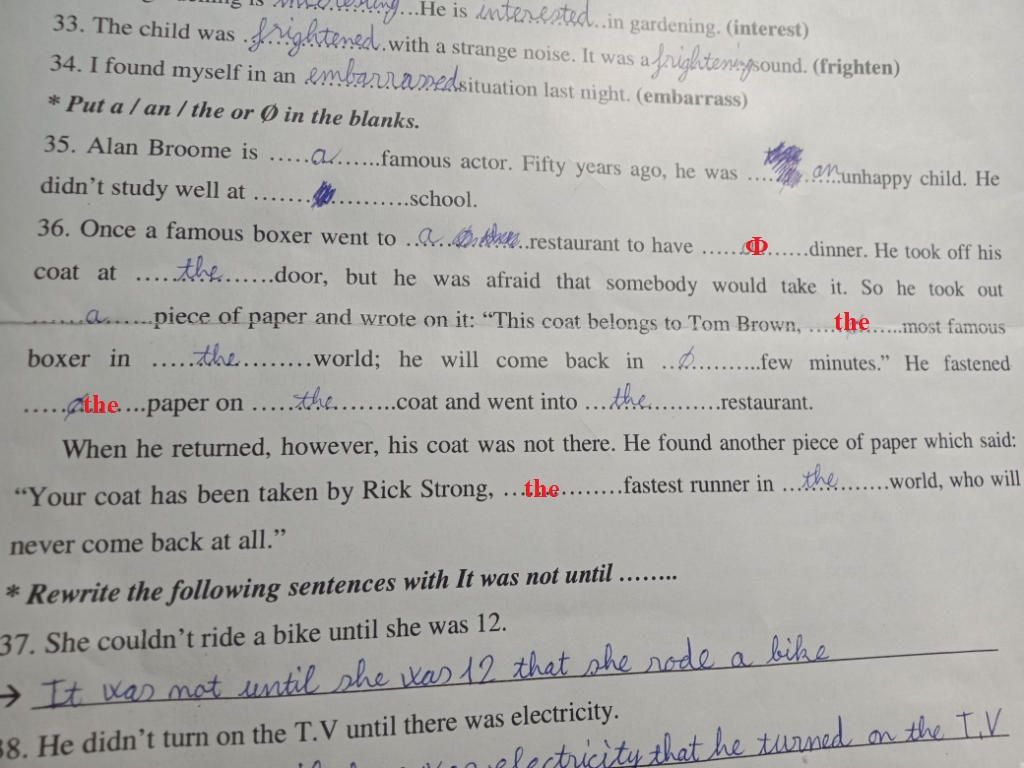 He is interested..in gardening. (interest)
33. The child was .frightened.with a strange noise. It was a frighteningsound. (frighten)
34. I found myself in an embarrassedsituation last night. (embarrass)
* Put a / an / the or Ø in the blanks.
35. Alan Broome is .....a......famous actor. Fifty years ago, he was ..... an...unhappy child. He
didn't study well at .................school.
36. Once a famous boxer went to ..a.....restaurant to have .....Φ......dinner. He took off his
coat at .....the.......door, but he was afraid that somebody would take it. So he took out
.......a......piece of paper and wrote on it: “This coat belongs to Tom Brown, ....the.....most famous
boxer in .....the.........world; he will come back in ..Ø..........few minutes.” He fastened
.....the....paper on .....the........coat and went into ...the..........restaurant.
When he returned, however, his coat was not there. He found another piece of paper which said:
“Your coat has been taken by Rick Strong, ...the.........fastest runner in ...the........world, who will
never come back at all.”
* Rewrite the following sentences with It was not until ........
37. She couldn't ride a bike until she was 12.
→ It was not until she was 12 that she rode a bike
38. He didn't turn on the T.V until there was electricity.
electricity that he turned on the T.V